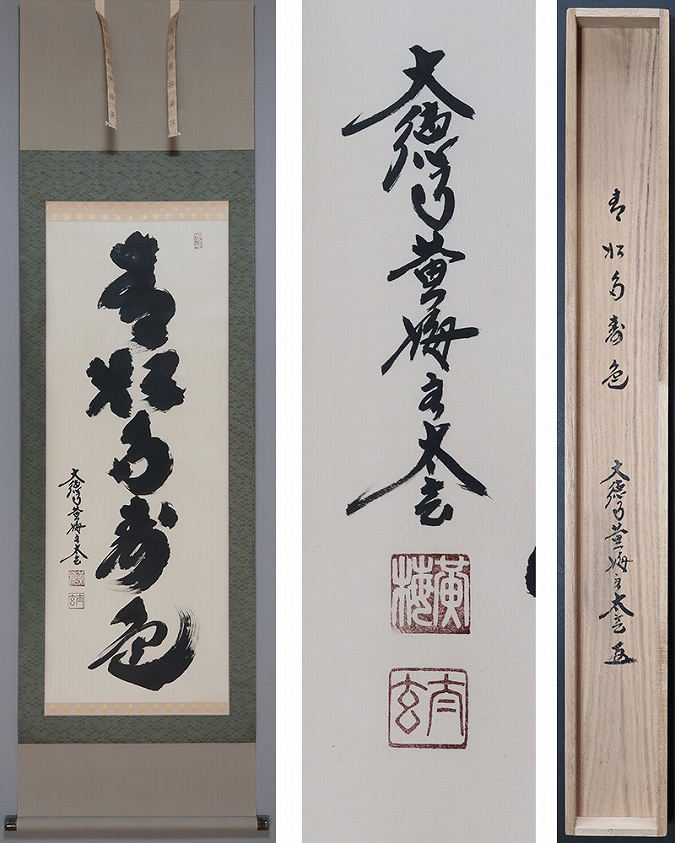 青松多寿色
大徳寺黄梅主太玄
大徳寺黄梅主太玄
黄梅
太玄
青松多寿色
大徳寺黄梅主太玄